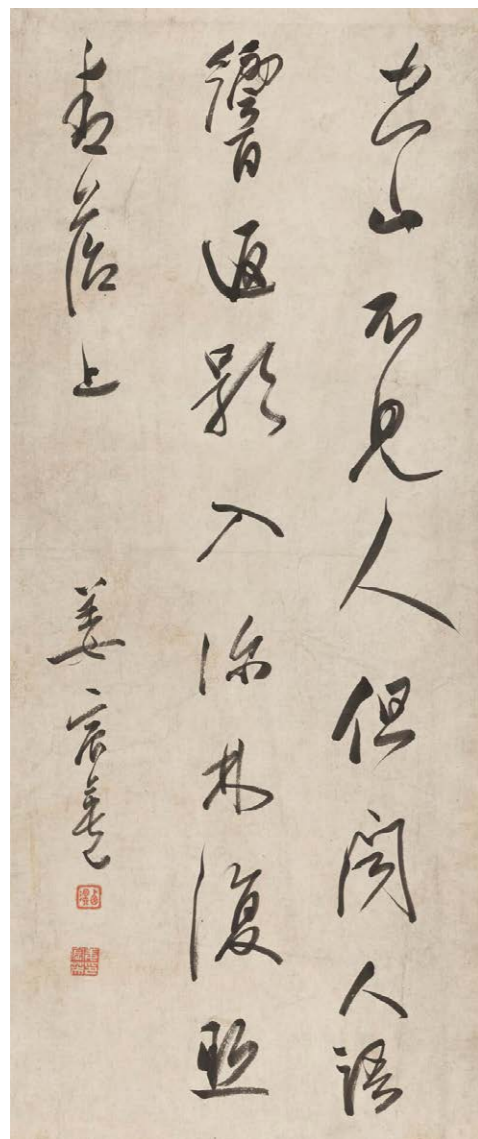 空山不見人但聞人語
響返影入深林復照
青苔上
姜宸英